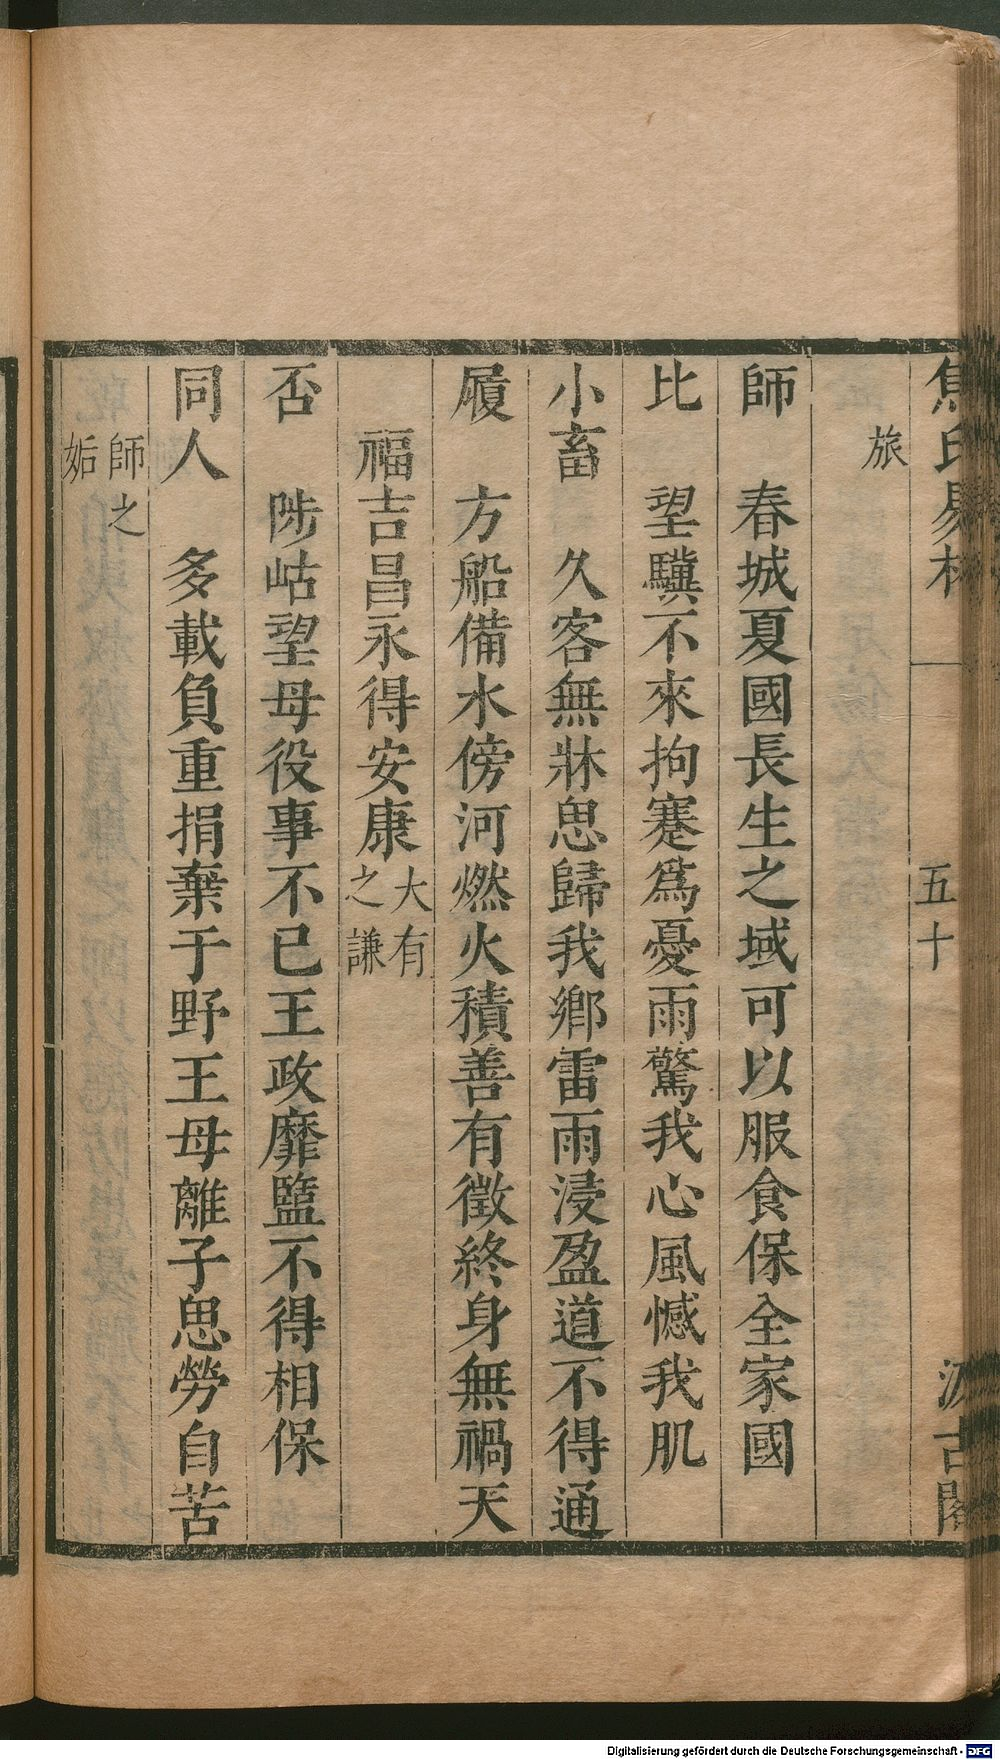 焦氏易林
五十
汲古閣
旅
師　春城夏國長生之域可以服食保全家國
比　望驥不來拘蹇爲憂雨驚我心風憾我肌
小畜　久客無牀思歸我鄉雷雨浸盈道不得通
履　方船備水傍河燃火積善有徵終身無禍天
福吉昌永得安康大有之謙
否　陟岵望母役事不已王政靡盬不得相保
同人　多載負重捐棄于野王母離子思勞自苦
師之姤
Digitalisierung gefördert durch die Deutsche Forschungsgemeinschaft - DFG